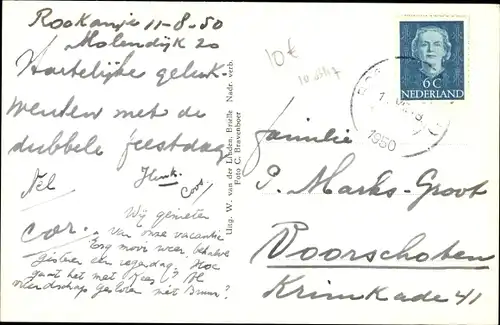 Rockanje 11-8-50
Molendijk 20
Hartelijke geluk-
wensen met de
dubbele feestdag
Nel Henk. Coos!
cor.
Wij genieten
van onze vacantie
Erg mooi weer, behalve
gisteren een regendag. Hoe
gaat het met Kees? Al
vriendschap gesloten met Bruun?
Uitg. W. van der Linden, Brielle Nadr. verb.
Foto C. Bravenboer
10€
6C
NEDERLAND
1950
familie
P. Marks-Groot
Voorschoten
Krimkade 41